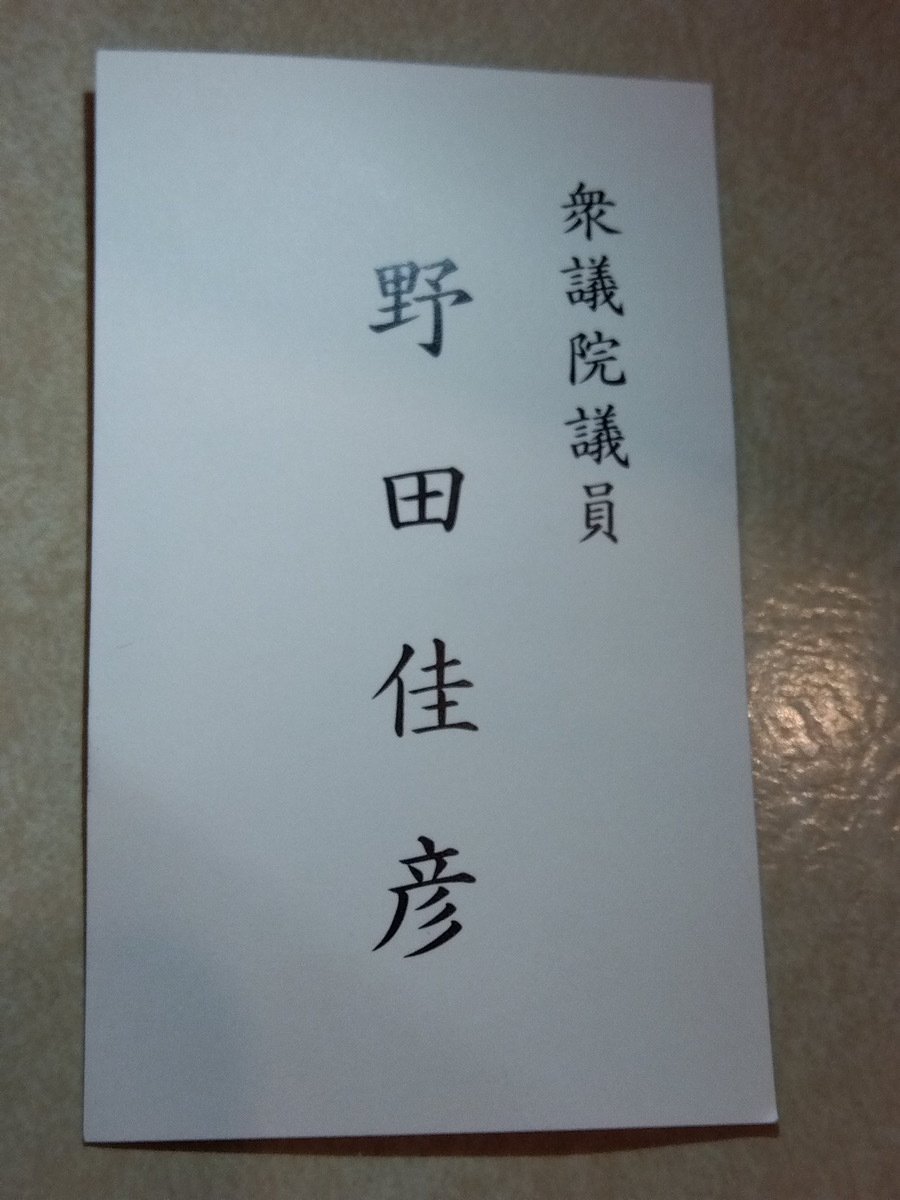 衆議院議員
野田佳彦